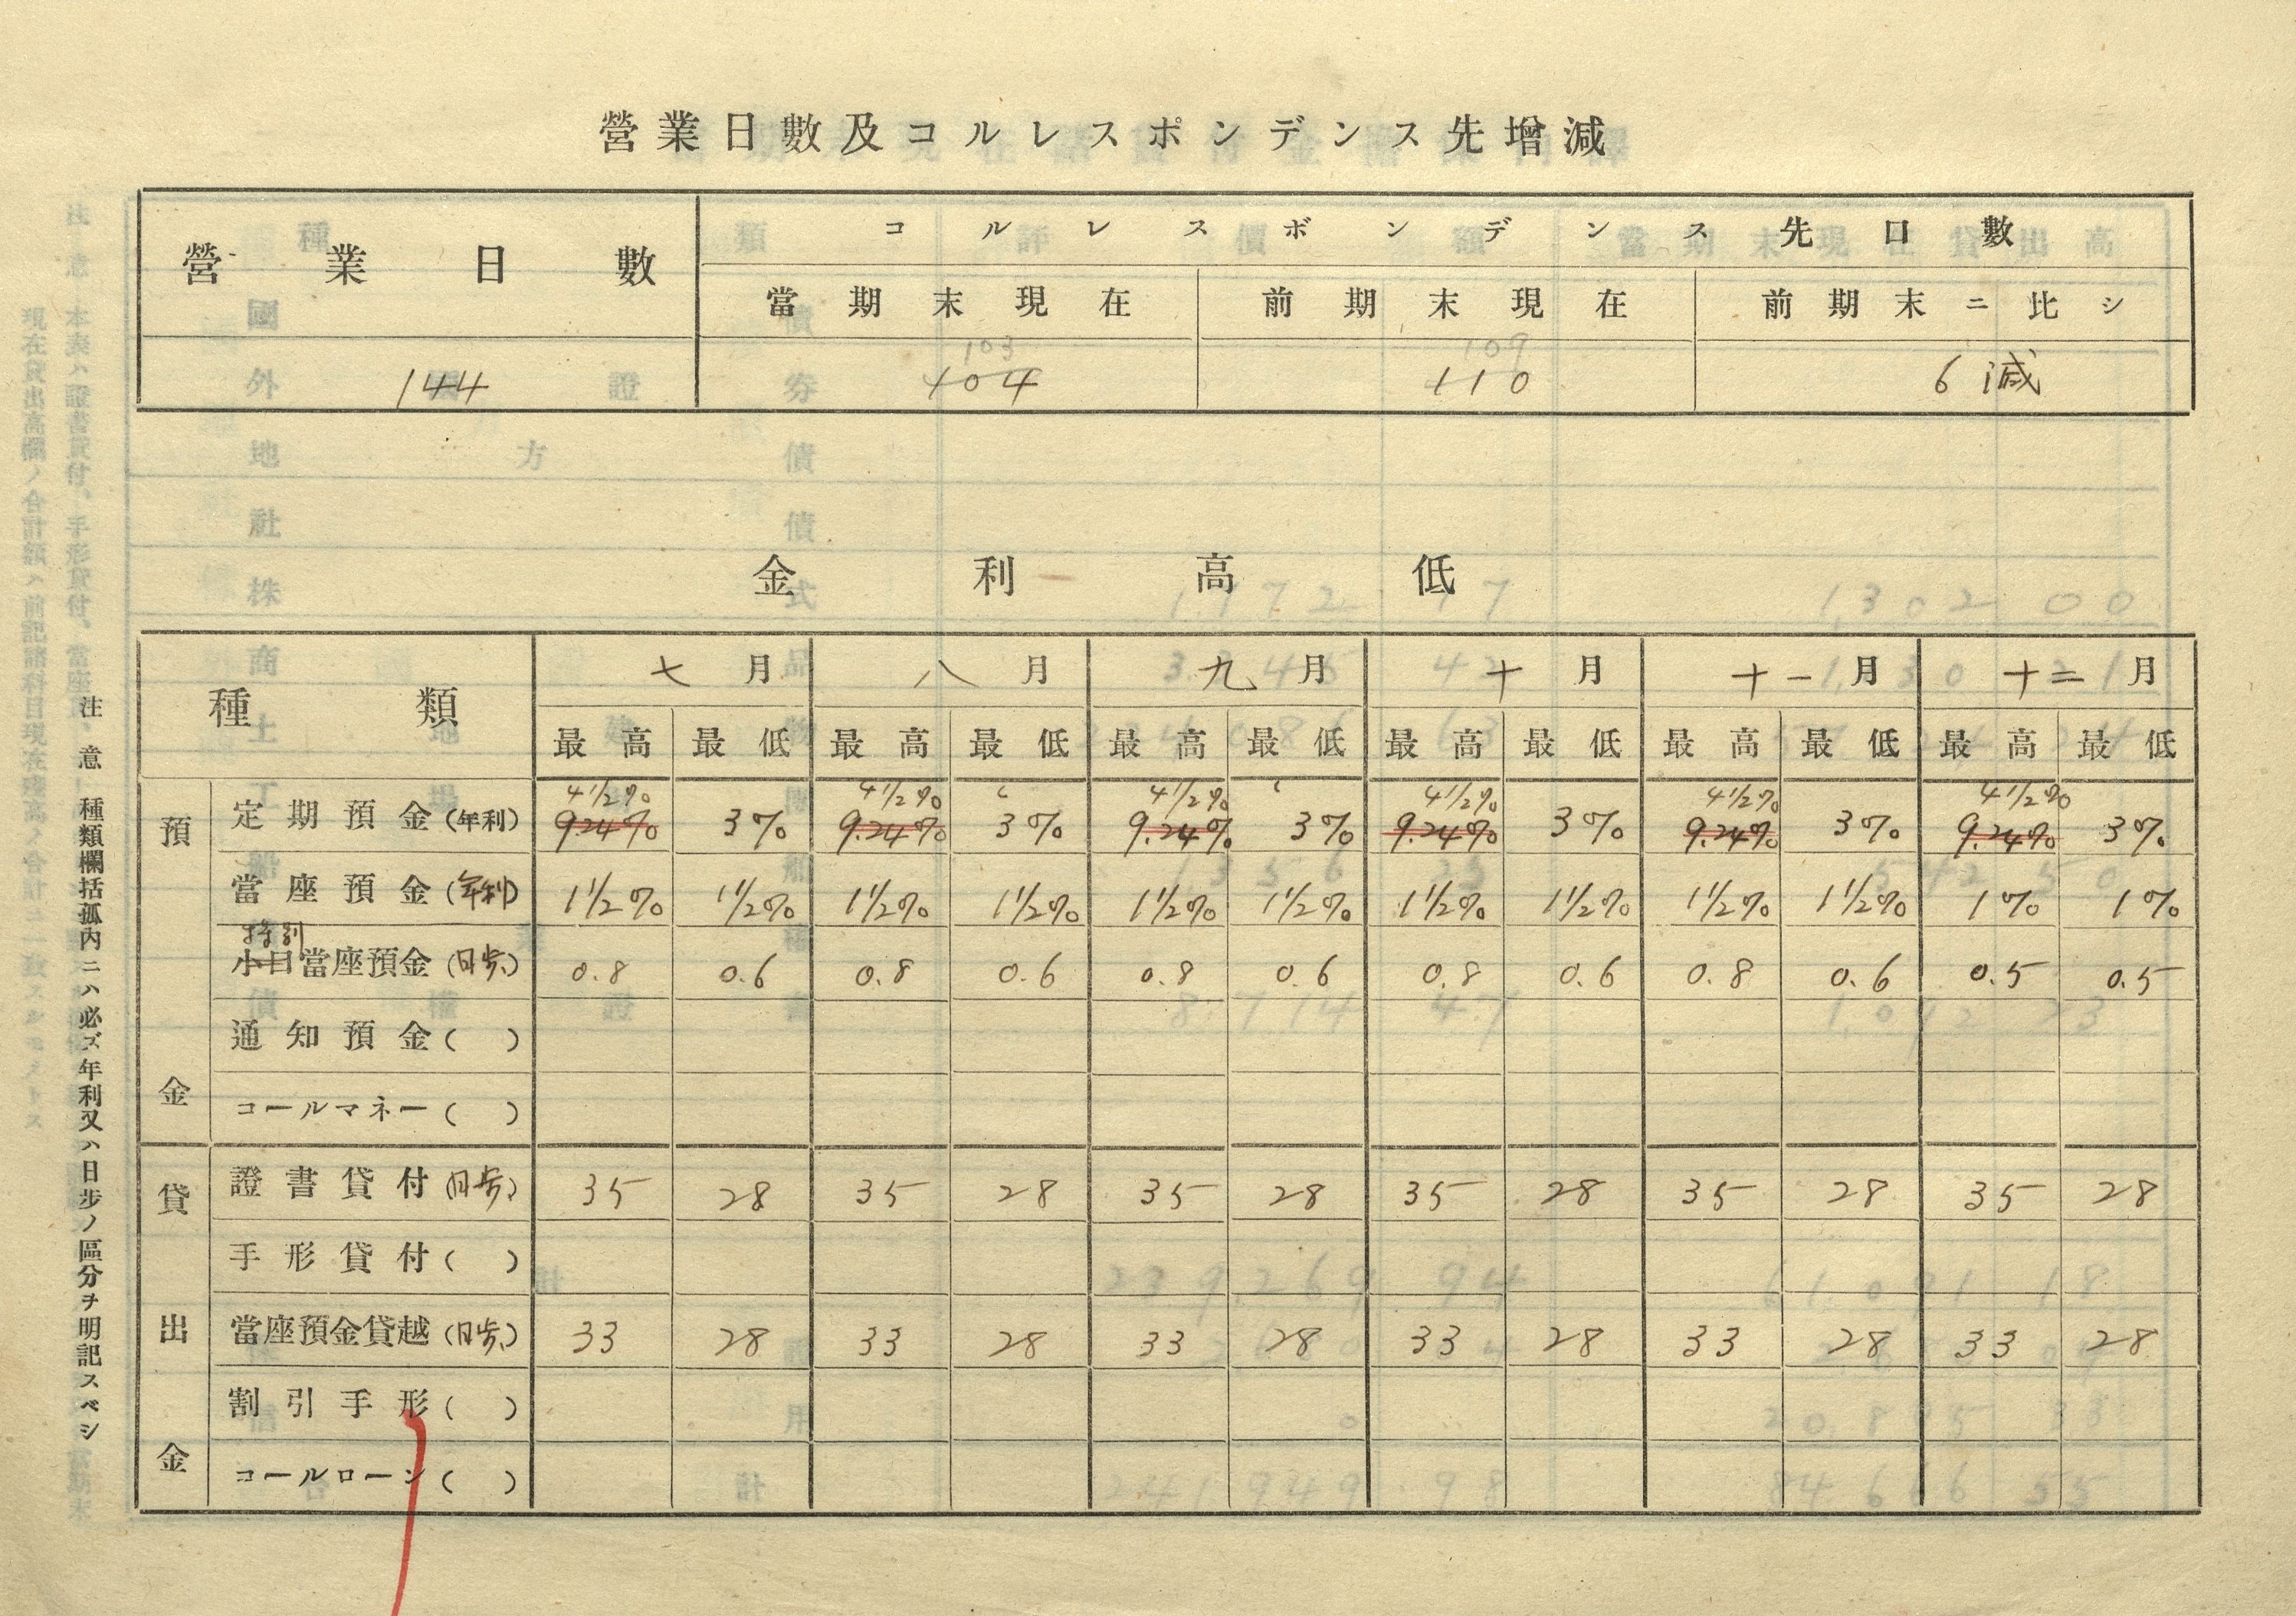 營業日數及コルレスポンデンス先增減
營業日數 コルレスポンデンス先口數
當期末現在 前期末現在 前期末ニ比シ
103 109
144 104 110 6減
金利高低
種類 七月 八月 九月 十月 十一月 十二月
最高 最低 最高 最低 最高 最低 最高 最低 最高 最低 最高 最低
預金
4 1/2% 4 1/2% 4 1/2% 4 1/2% 4 1/2% 4 1/2%
定期預金(年利) 9.24% 3% 9.24% 3% 9.24% 3% 9.24% 3% 9.24% 3% 9.24% 3%
當座預金(年利) 1 1/2% 1 1/2% 1 1/2% 1 1/2% 1 1/2% 1 1/2% 1 1/2% 1 1/2% 1 1/2% 1 1/2% 1% 1%
特別
小口當座預金(日歩) 0.8 0.6 0.8 0.6 0.8 0.6 0.8 0.6 0.8 0.6 0.5 0.5
通知預金( )
コールマネー( )
貸出金
證書貸付(日歩) 35 28 35 28 35 28 35 28 35 28 35 28
手形貸付( )
當座預金貸越(日歩) 33 28 33 28 33 28 33 28 33 28 33 28
割引手形( )
コールローン( )
注意 種類欄括孤內ニハ必ズ年利又ハ日步ノ區分ヲ明記スベシ